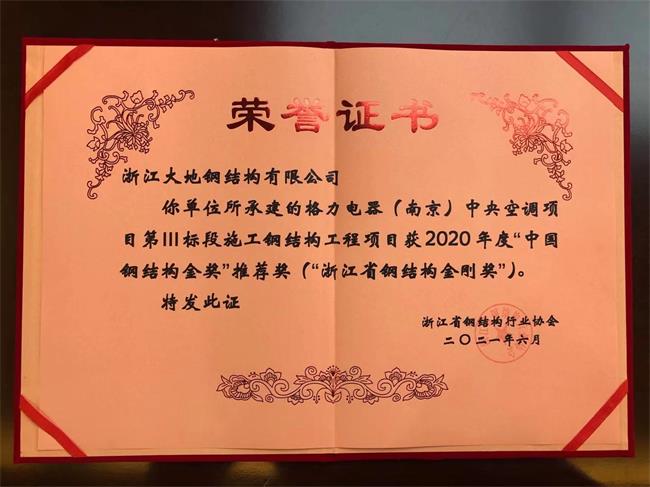 荣誉证书
浙江大地钢结构有限公司
你单位所承建的格力电器（南京）中央空调项
目第III标段施工钢结构工程项目获2020年度“中国
钢结构金奖”推荐奖（“浙江省钢结构金刚奖”）。
特发此证
浙江省钢结构行业协会
二〇二一年六月